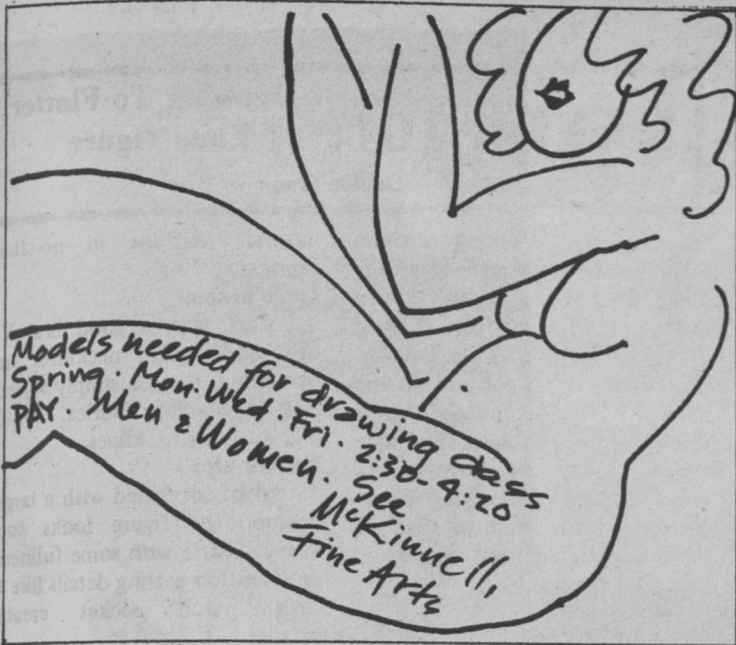 Models needed for drawing class
Spring. Mon. Wed. Fri. 2:30-4:20
PAY. Men & Women. See
McKinnell,
Fine Arts